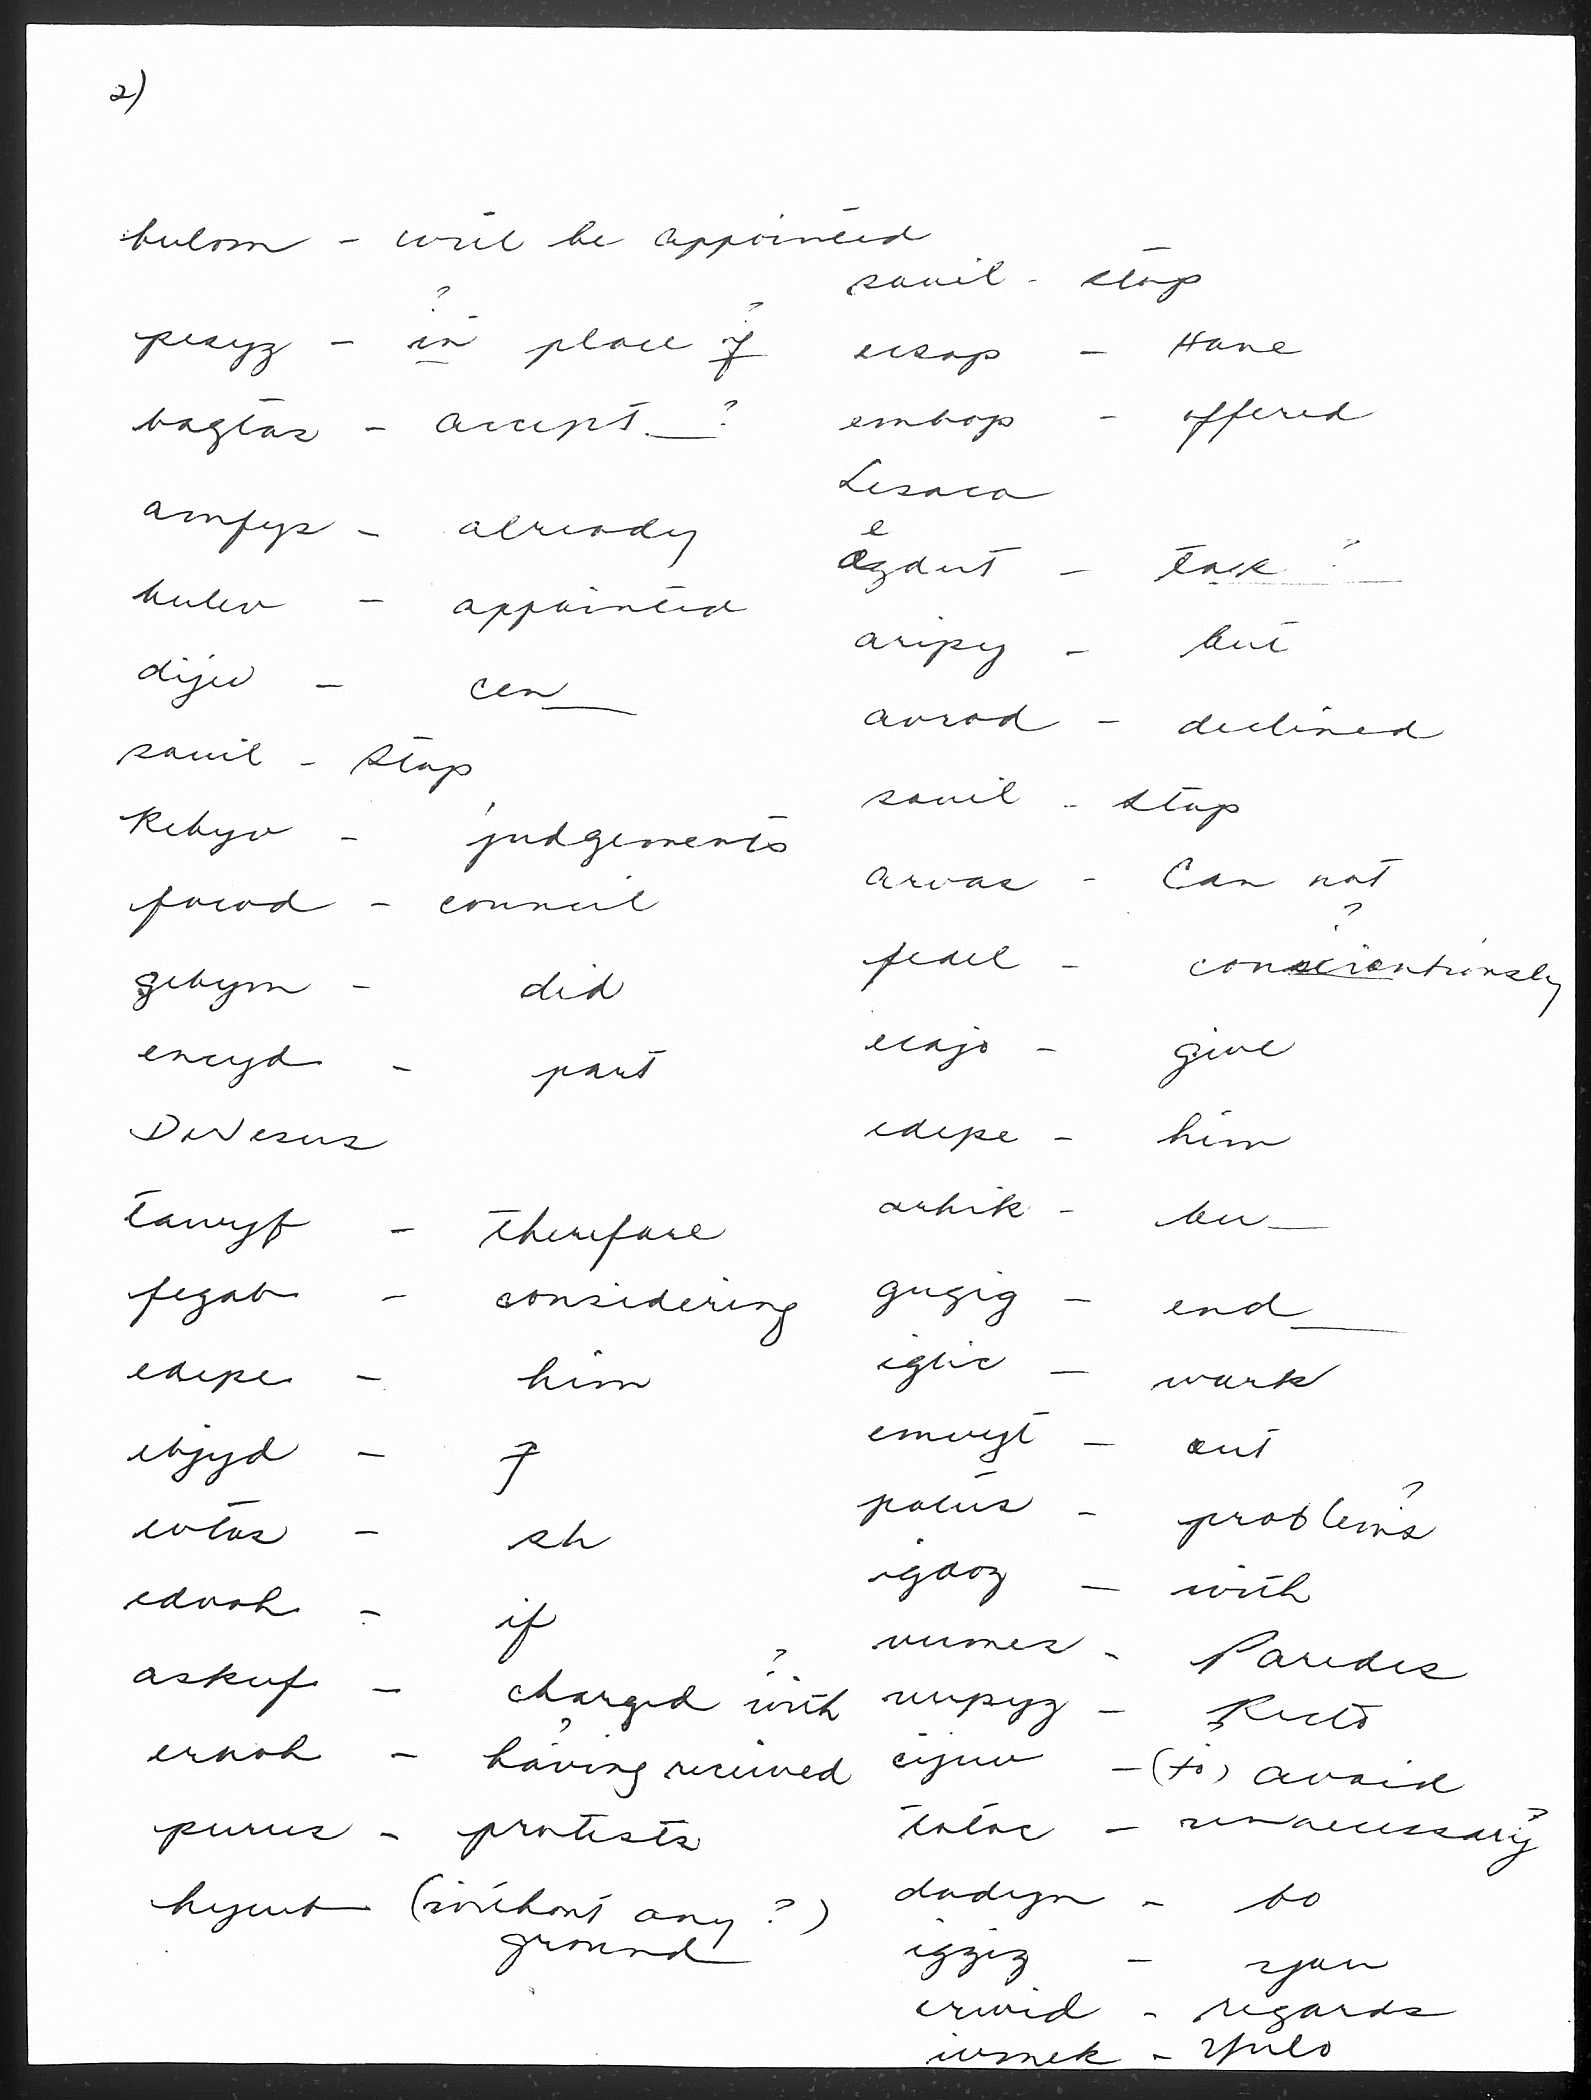 2)
bulom - will be appointed
pesyz - in ? place of ?
bagtas - accept ?
amfys - already
bulev - appointed
dijev - cen
sauil - stop
Kebyv - judgements
facod - council
gebym - did
encyd - part
DeJesus
tawyf - therefore
fegab - considering
edepe - him
ebjyd - of
evtas - sh
ednoh - if
askuf - charged with ?
eruoh - having received ?
purus - protests
hycub (without any ?)
ground
sauil - stop
eisop - Have
embop - offered
Lesaca
e
ozdut - task ?
aripy - but
avrod - declined
sauil - stop
arvas - Can not
fedel - conscientiously ?
ecajo - give
edepe - him
arhik - bu
gugig - end
iglic - work
emvyt - out
patus - problems ?
igdoz - with
vumes - Paredes
uupyz - Recto
cijuv - (to) ? avoid
totoc - unnecessary ?
dadym - bo
igziz - you
erwid - regards
ivmek - Yulo